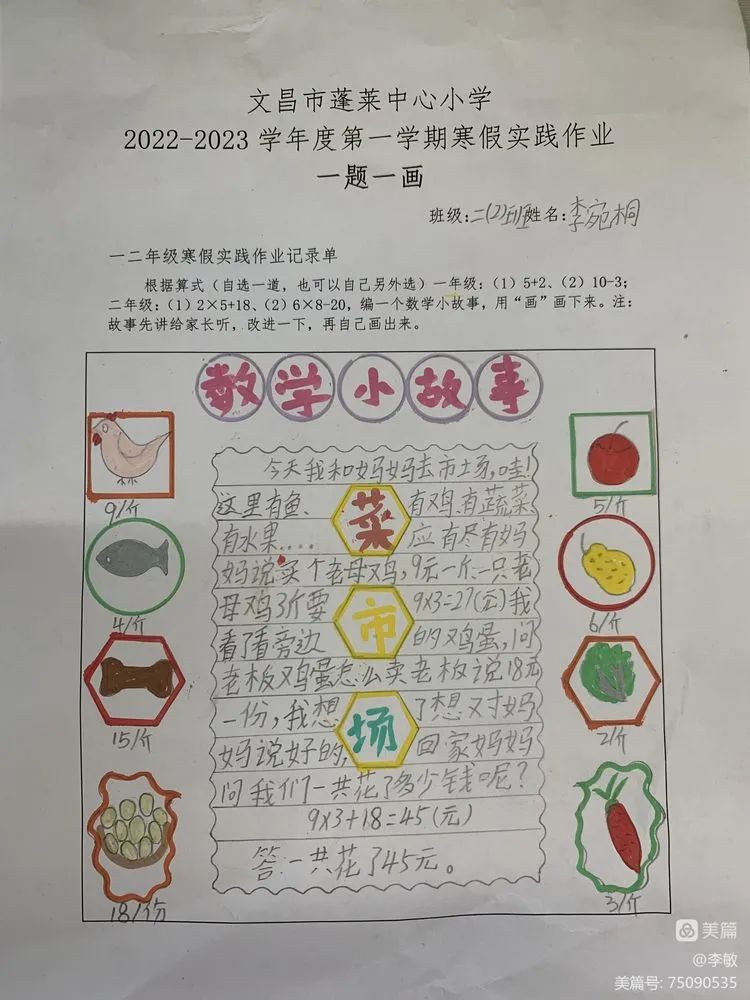 文昌市蓬莱中心小学
2022-2023 学年度第一学期寒假实践作业
一题一画
班级:二(2)班姓名:李宛桐
一二年级寒假实践作业记录单
根据算式（自选一道，也可以自己另外选）一年级：(1) 5+2、(2) 10-3；
二年级：(1) 2×5+18、(2) 6×8-20，编一个数学小故事，用“画”画下来。注：
故事先讲给家长听，改进一下，再自己画出来。
数学小故事
菜市场
今天我和妈妈去市场,哇!
这里有鱼、有鸡、有蔬菜
有水果....应有尽有妈
妈说买个老母鸡,9元一斤一只老
母鸡3斤要9×3=27(元)我
看了看旁边的鸡蛋,问
老板鸡蛋怎么卖老板说18元
一份,我想了想又对妈
妈说好的,回家妈妈
问我们一共花了多少钱呢?
9×3+18=45(元)
答:一共花了45元。
9/斤
4/斤
15/斤
18/份
5/斤
6/斤
2/斤
3/斤
美篇
@李敏
美篇号: 75090535